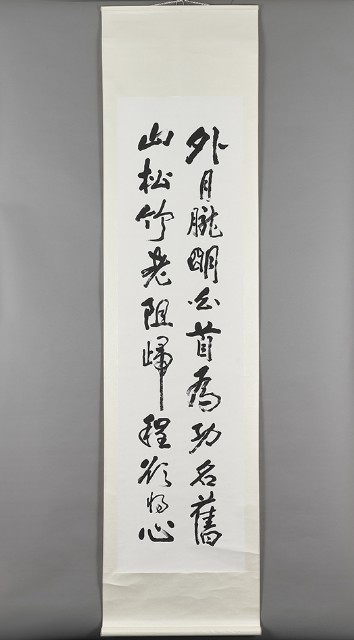 外月朧明白首為功名舊
山松竹老阻歸程欲將心